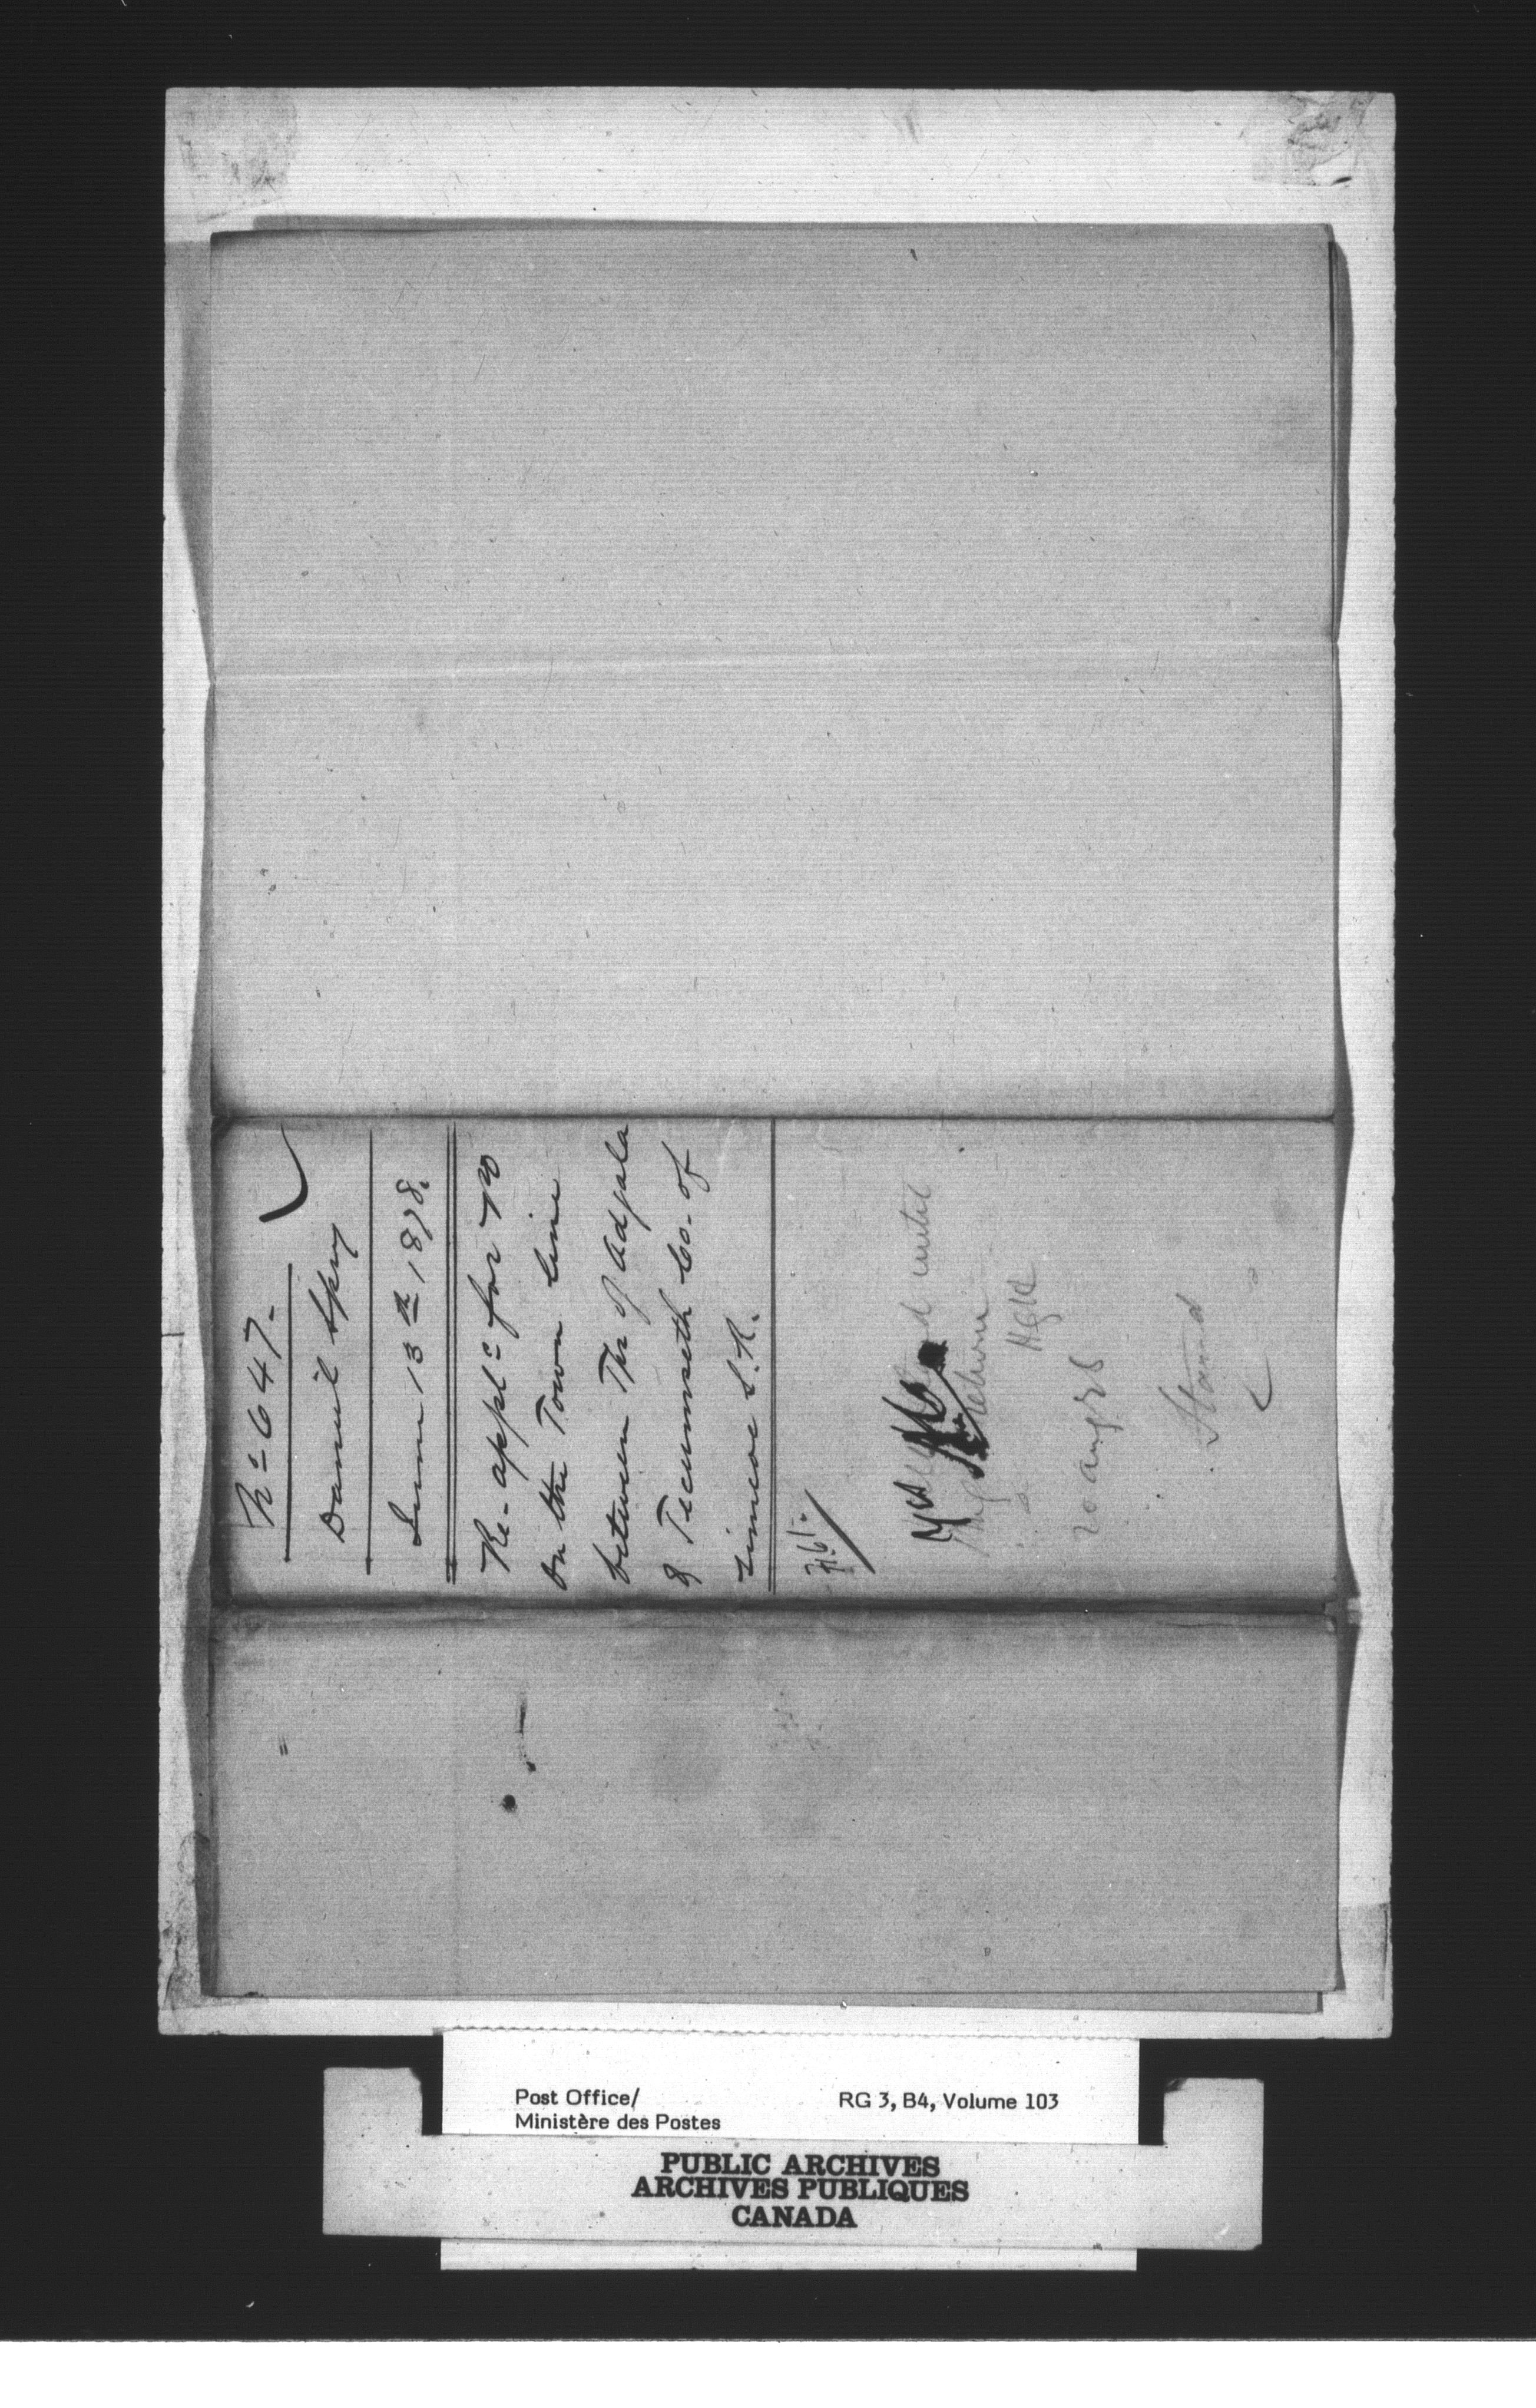 No 647-
Daniel Spry
June 13th 1878.
Re-applc for PO
on the Town line
between Tps of Adjala
& Tecumseth Co. of
Simcoe S.R.
until
20 Aug 78
Post Office/
Ministère des Postes
RG 3, B4, Volume 103
PUBLIC ARCHIVES
ARCHIVES PUBLIQUES
CANADA